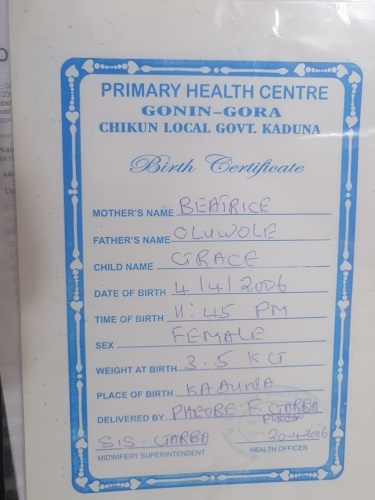 PRIMARY HEALTH CENTRE
GONIN-GORA
CHIKUN LOCAL GOVT. KADUNA
Birth Certificate
MOTHER'S NAME BEATRICE
FATHER'S NAME OLUWOLE
CHILD NAME GRACE
DATE OF BIRTH 4/4/2006
TIME OF BIRTH 11:45 PM
SEX FEMALE
WEIGHT AT BIRTH 3.5 KG
PLACE OF BIRTH KADUNA
DELIVERED BY F. GARBA
SIS. GARBA
MIDWIFERY SUPERINTENDENT
HEALTH OFFICER